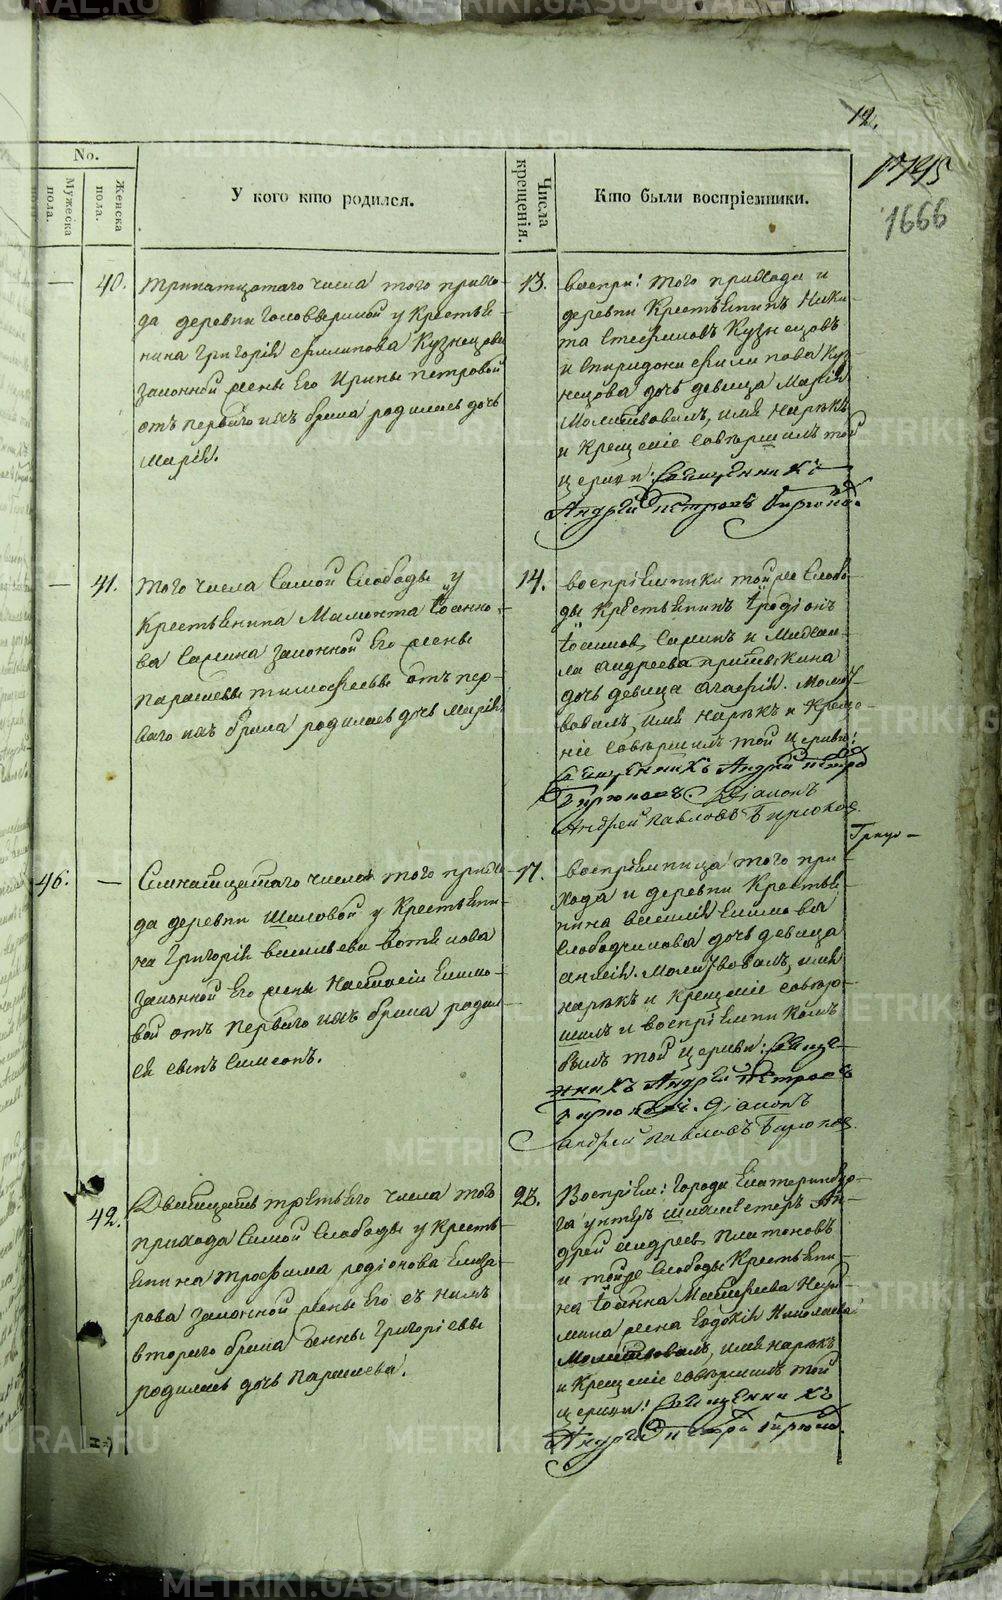 METRIKI.GASU-URAL.RU
12.
1795
1666
No.
Мужеска пола.
Женска пола.
У кого кто родился.
Числа крещенія.
Кто были воспріемники.
40.
тринатцатаго числа того прихо-
да деревни Головыриной у Крестья-
нина Григорія Филипова Кузнецова
законной жены Его Ирины Петровой
отъ перваго ихъ брака родилась дочь
Марія.
13.
воспри: того прихода и
деревни Крестьянинъ Ники-
та Стефановъ Кузнецовъ
и Спиридона Филипова Куз-
нецова дочь девица Марія
Молитвовалъ, имя нарѣкъ
и Крещеніе совершилъ той
церкви: Священникъ
Андрей Петровъ Бирюковъ.
41.
того числа Самой Слободы у
Крестьянина Мамонта Іоанно-
ва законной Его жены
Параскевы Тимофеевы отъ пер-
ваго ихъ брака родилась дочь Марія.
14.
воспріемники той же Слобо-
ды Крестьянинъ Іродіонъ
Іоанновъ и Михаи-
ла Андреева
дочь девица Агафія. Молит-
вовалъ, имя нарѣкъ и Креще-
ніе совершилъ той церкви:
Священникъ Андрей Петровъ
Бирюковъ. Діаконъ
Андрей Павловъ Бирюков.
46.
Семнатцатаго числа того прихо-
да деревни Шиловой у Крестьяни-
на Григорія Васильева Вотякова
законной Его жены Настасіи Екимо-
вой отъ перваго ихъ брака родил-
ся сынъ Симеонъ.
17.
воспріемница того при-
хода и деревни Крестья-
нина Василія Екимова
Слободчикова дочь девица
Молитвовалъ, имя
нарѣкъ и Крещеніе совер-
шилъ и воспріемникомъ
былъ той церкви: Свяще-
нникъ Андрей Петровъ
Бирюковъ. Діаконъ
Андрей Павловъ Бирюков.
42.
Дватцать третьяго числа того
прихода Самой Слободы у Кресть-
янина Трофима Родіонова Елиза-
рова законной жены Его съ нимъ
втораго брака Анны Григорьевы
родилась дочь Параскева.
23.
Воспріем: города Екатеринбур-
га унтеръ шихмейстеръ Ан-
дрей Андреевъ Платоновъ
и тойже Слободы Крестьяни-
на Іоанна Матфеева
жена Евдокія Николаева
Молитвовалъ, имя нарѣкъ
и Крещеніе совершилъ той
церкви: Священникъ
Андрей Петровъ Бирюков.